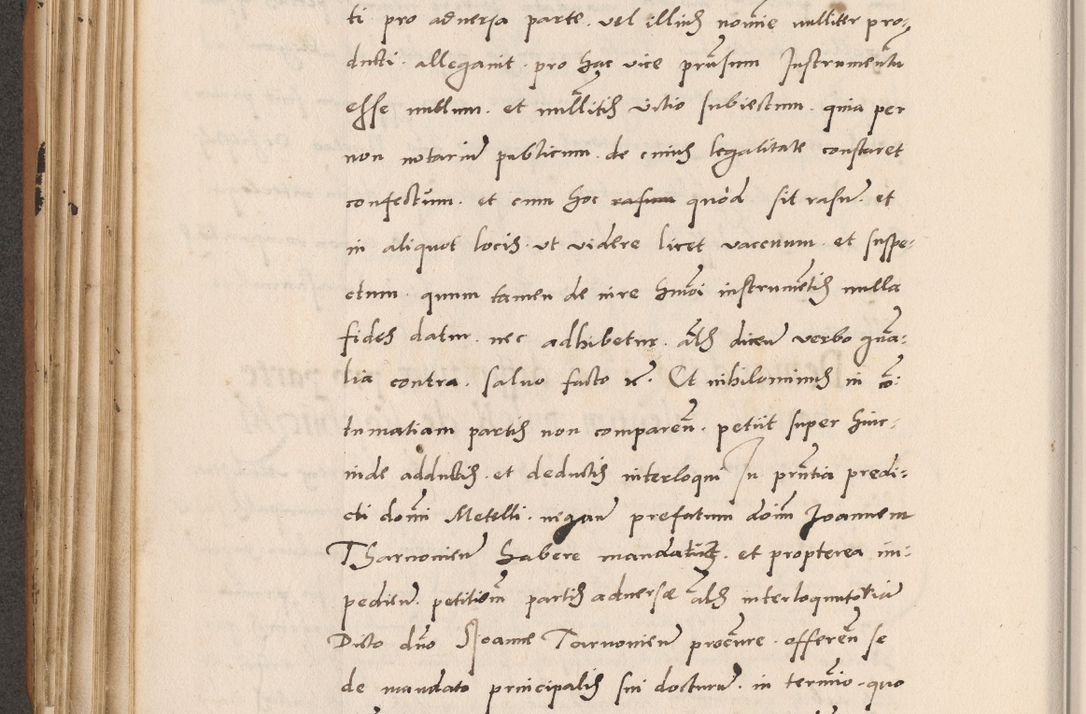 ti pro aduersa parte. vel illius nomīe nulliter pro-
ducti. allegauit. pro hac vice prn̄sum Instrumentū
esse nullum. et nullitis vitio subiectum. quia per
non notariū publicum. de cuius legalitate constaret
confectum. et cum hoc quod sit rasū. et
in aliquot locis. ut videre licet vacuum. et suspe-
ctum. quum tamen de iure hmōi instrumētis nulla
fides datur. nec adhibetur. als̄ dicen̄ verbo gn̄a-
lia contra. saluo facto rē. Et nihilominus in cō-
tumatiam partis non comparen̄. petiit super hinc-
inde adductis. et deductis interloqui In prn̄tia predi-
cti domī Metelli. negan̄ prefatum doīm Joannem
Tharnonien̄ habere mandatum. et propterea im-
pedien̄. petitiōm partis aduersæ als̄ interloquutoria
Dicto dn̄o Joanne Tarnonien̄ procūre. offeren̄ se
de mandato principalis sui docturū. in termīo. quo